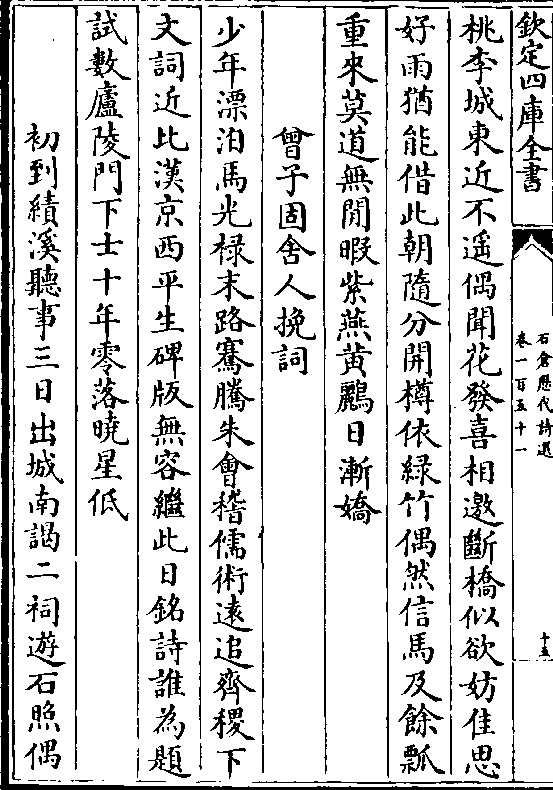 欽定四庫全書
石倉歷代詩選
卷一百五十一
十五
桃李城東近不遥偶聞花發喜相邀斷橋似欲妨佳思
好雨猶能借此朝隨分開樽依綠竹偶然信馬及餘瓢
重來莫道無閒暇紫燕黄鸝日漸嬌
曾子固舍人挽詞
少年漂泊馬光祿末路騫騰朱會稽儒術遠追齊稷下
文詞近比漢京西平生碑版無容繼此日銘詩誰為題
試數廬陵門下士十年零落曉星低
初到績溪聽事三日出城南謁二祠遊石照偶